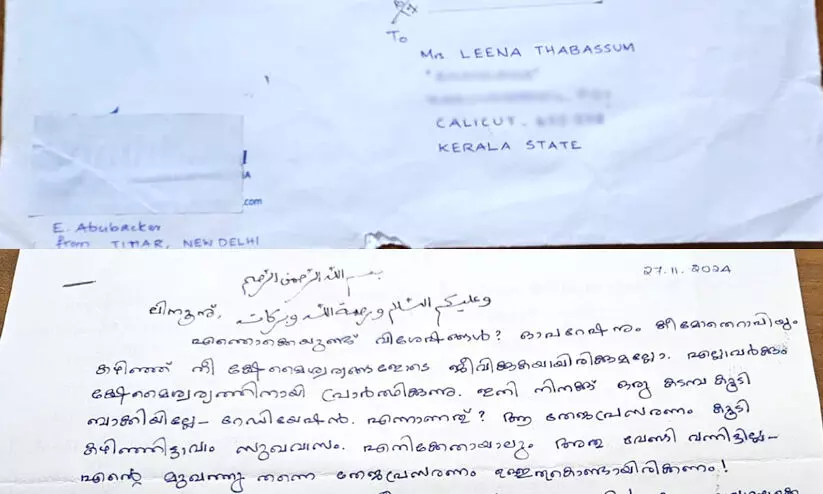 To
Mrs LEENA THABASSUM
CALICUT.
KERALA STATE
.com
E. Abubacker
from TIHAR, NEW DELHI
بسم الله الرحمن الرحيم
27.11.2024
ലീനൂന്, وعليكم السلام ورحمة الله وبركاته
എന്തൊക്കെയുണ്ട് വിശേഷങ്ങൾ? ഓപറേഷനും കീമോതെറാപിയും
കഴിഞ്ഞ് നീ ക്ഷേമൈശ്വര്യങ്ങളോടെ ജീവിക്കുകയായിരിക്കുമല്ലോ. എല്ലാവർക്കും
ക്ഷേമൈശ്വര്യത്തിനായി പ്രാർത്ഥിക്കുന്നു. ഇനി നിനക്ക് ഒരു കടമ്പ കൂടി
ബാക്കിയില്ലേ - റേഡിയേഷൻ. എന്നാണത്? ആ തേജപ്രസരണം കൂടി
കഴിഞ്ഞിട്ടാവാം സുഖവാസം. എനിക്കേതായാലും അതു വേണ്ടി വന്നിട്ടില്ല -
എന്റെ മുഖത്തു തന്നെ തേജപ്രസരണം ഉള്ളതുകൊണ്ടായിരിക്കണം!